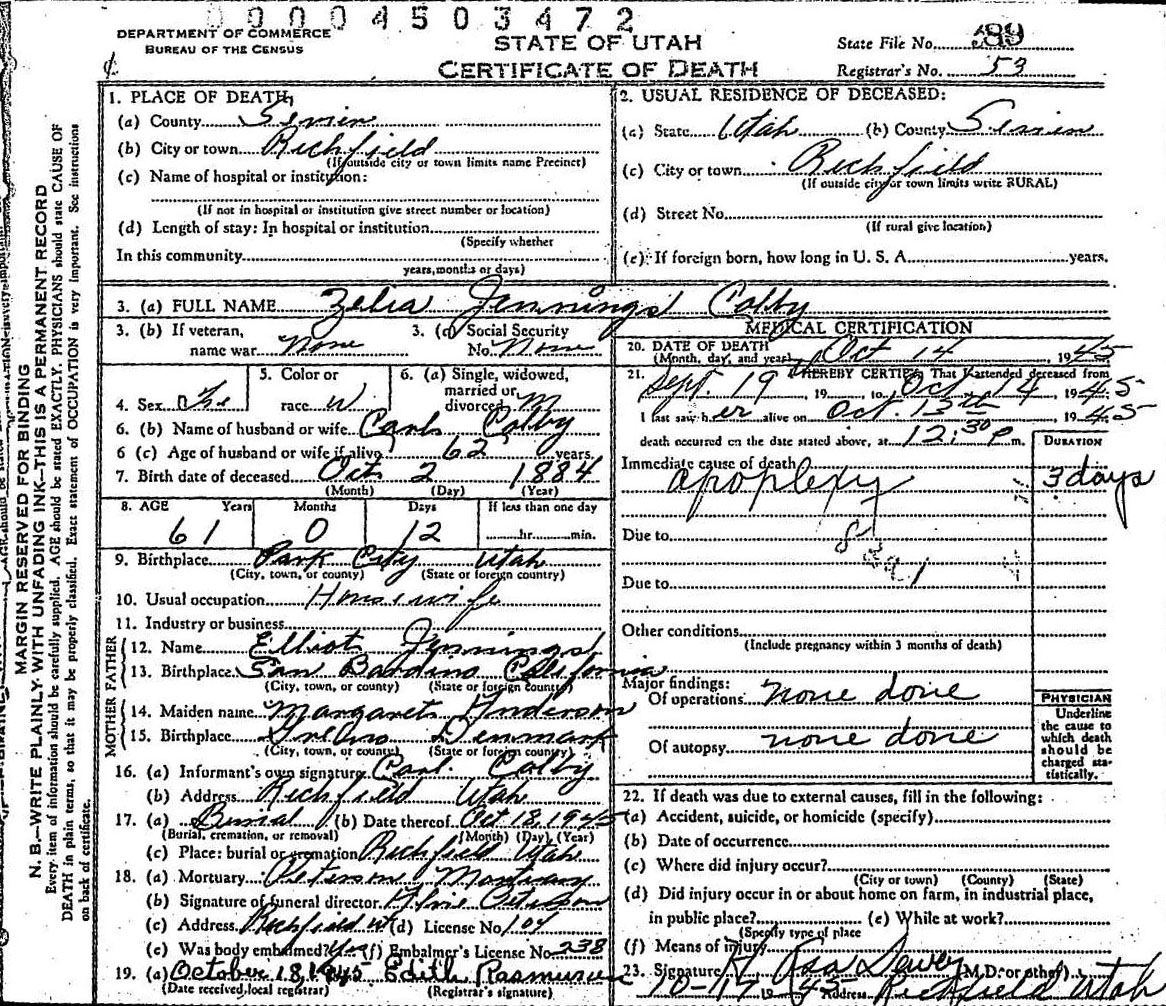 00004503472
DEPARTMENT OF COMMERCE
BUREAU OF THE CENSUS
STATE OF UTAH
CERTIFICATE OF DEATH
State File No. 589
Registrar's No. 53
MARGIN RESERVED FOR BINDING
N. B.—WRITE PLAINLY, WITH UNFADING INK—THIS IS A PERMANENT RECORD
Every item of information should be carefully supplied. AGE should be stated EXACTLY. PHYSICIANS should state CAUSE OF
DEATH in plain terms, so that it may be properly classified. Exact statement of OCCUPATION is very important. See instructions
on back of certificate.
1. PLACE OF DEATH
(a) County Sevier
(b) City or town Richfield
(If outside city or town limits name Precinct)
(c) Name of hospital or institution:
(If not in hospital or institution give street number or location)
(d) Length of stay: In hospital or institution
(Specify whether
In this community
years, months or days)
2. USUAL RESIDENCE OF DECEASED:
(a) State Utah (b) County Sevier
(c) City or town Richfield
(If outside city or town limits write RURAL)
(d) Street No.
(If rural give location)
(e) If foreign born, how long in U. S. A. years.
3. (a) FULL NAME Zelia Jennings Colby
3. (b) If veteran, name war None
3. (c) Social Security No. None
4. Sex Fe
5. Color or race W
6. (a) Single, widowed, married or divorced M
6. (b) Name of husband or wife Carl Colby
6 (c) Age of husband or wife if alive 62 years.
7. Birth date of deceased Oct 2 1884
(Month) (Day) (Year)
8. AGE Years Months Days If less than one day
61 0 12 hr. min.
9. Birthplace Park City Utah
(City, town, or county) (State or foreign country)
10. Usual occupation Housewife
11. Industry or business
FATHER
12. Name Elliot Jennings
13. Birthplace San Bardino California
(City, town, or county) (State or foreign country)
MOTHER
14. Maiden name Margaret Anderson
15. Birthplace Denmark
(City, town, or county) (State or foreign country)
16. (a) Informant's own signature Carl Colby
(b) Address Richfield Utah
17. (a) Burial (b) Date thereof Oct 18, 1945
(Burial, cremation, or removal) (Month) (Day) (Year)
(c) Place: burial or cremation Richfield Utah
18. (a) Mortuary Peterson Mortuary
(b) Signature of funeral director
(c) Address Richfield Ut (d) License No. 104
(e) Was body embalmed? Yes (f) Embalmer's License No. 238
19. (a) October 18, 1945 Edith Rasmussen
(Date received, local registrar) (Registrar's signature)
MEDICAL CERTIFICATION
20. DATE OF DEATH
(Month, day, and year) Oct 14, 1945
21. I HEREBY CERTIFY That I attended deceased from
Sept. 19, 19 to Oct 14 1945
I last saw her alive on Oct. 13th 1945
death occurred on the date stated above, at 12:30 P m.
DURATION
Immediate cause of death
apoplexy 3 days
Due to
Due to
Other conditions
(Include pregnancy within 3 months of death)
Major findings:
Of operations none done
Of autopsy none done
PHYSICIAN
Underline
the cause to
which death
should be
charged sta-
tistically.
22. If death was due to external causes, fill in the following:
(a) Accident, suicide, or homicide (specify)
(b) Date of occurrence
(c) Where did injury occur?
(City or town) (County) (State)
(d) Did injury occur in or about home on farm, in industrial place,
in public place? (e) While at work?
(Specify type of place
(f) Means of injury
23. Signature Asa Dewey (M.D. or other)
10-17 1945 Address Richfield Utah